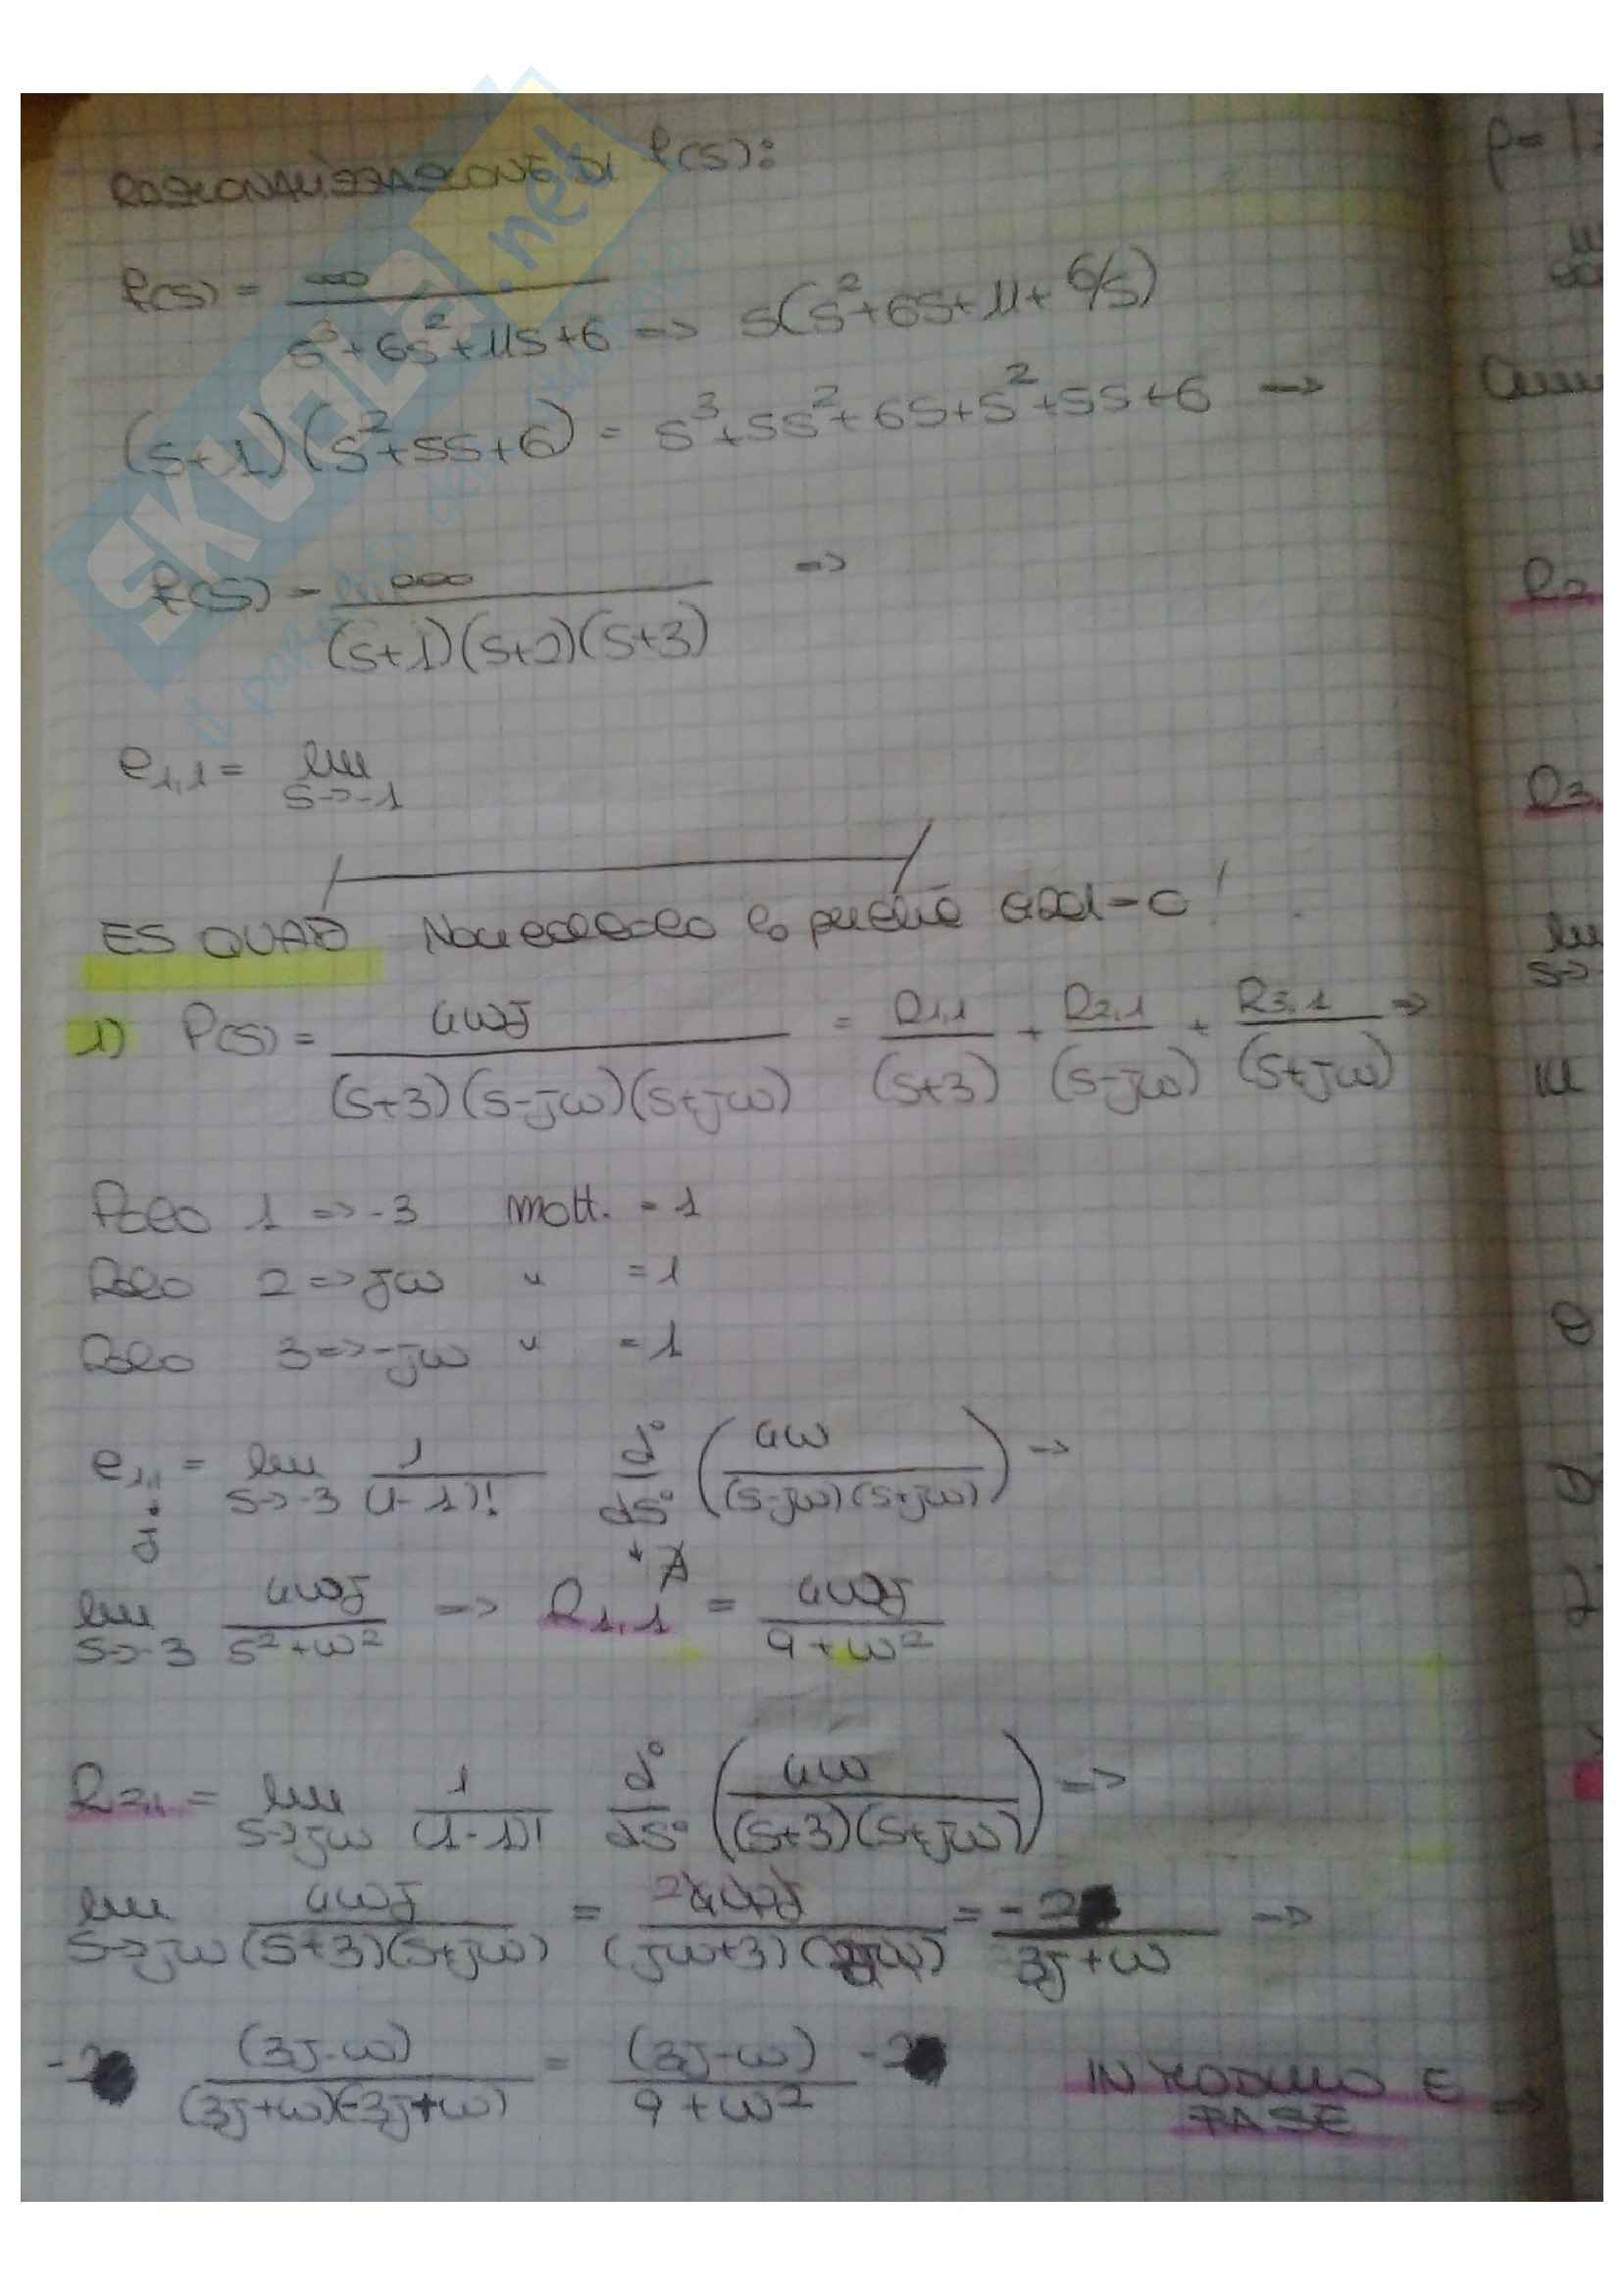 RAZIONALIZZAZIONE DI P(s):
P(s) = ∞ / (s³+6s²+11s+6) => s(s²+6s+11+6/s)
(s+1)(s²+5s+6) = s³+5s²+6s+s²+5s+6 =>
P(s) = ∞ / ((s+1)(s+2)(s+3)) =>
e1,1 = lim s->-1
ES QUAD Non calcolo lo perché = 0!
1) P(s) = 4ωj / ((s+3)(s-jω)(s+jω)) = R1,1/(s+3) + R2,1/(s-jω) + R3,1/(s+jω) =>
Polo 1 => -3 molt. = 1
Polo 2 => jω " = 1
Polo 3 => -jω " = 1
e1,1 = lim s->-3 1/(1-1)! d°/ds° (4ω / ((s-jω)(s+jω))) ->
j
lim s->-3 4ωj/(s²+ω²) => R1,1 = 4ωj/(9+ω²)
R2,1 = lim s->jω 1/(1-1)! d°/ds° (4ω / ((s+3)(s+jω))) =>
lim s->jω 4ωj / ((s+3)(s+jω)) = 2 4ωj / ((jω+3)(2jω)) = -2 / (3j+ω) ->
-2 (3j-ω) / ((3j+ω)(-3j+ω)) = (3j-ω)/(9+ω²) -2
IN MODULO E =>
FASE
SKUOLa.net
il portale degli studenti
P=1
R2
R3
lim
s->